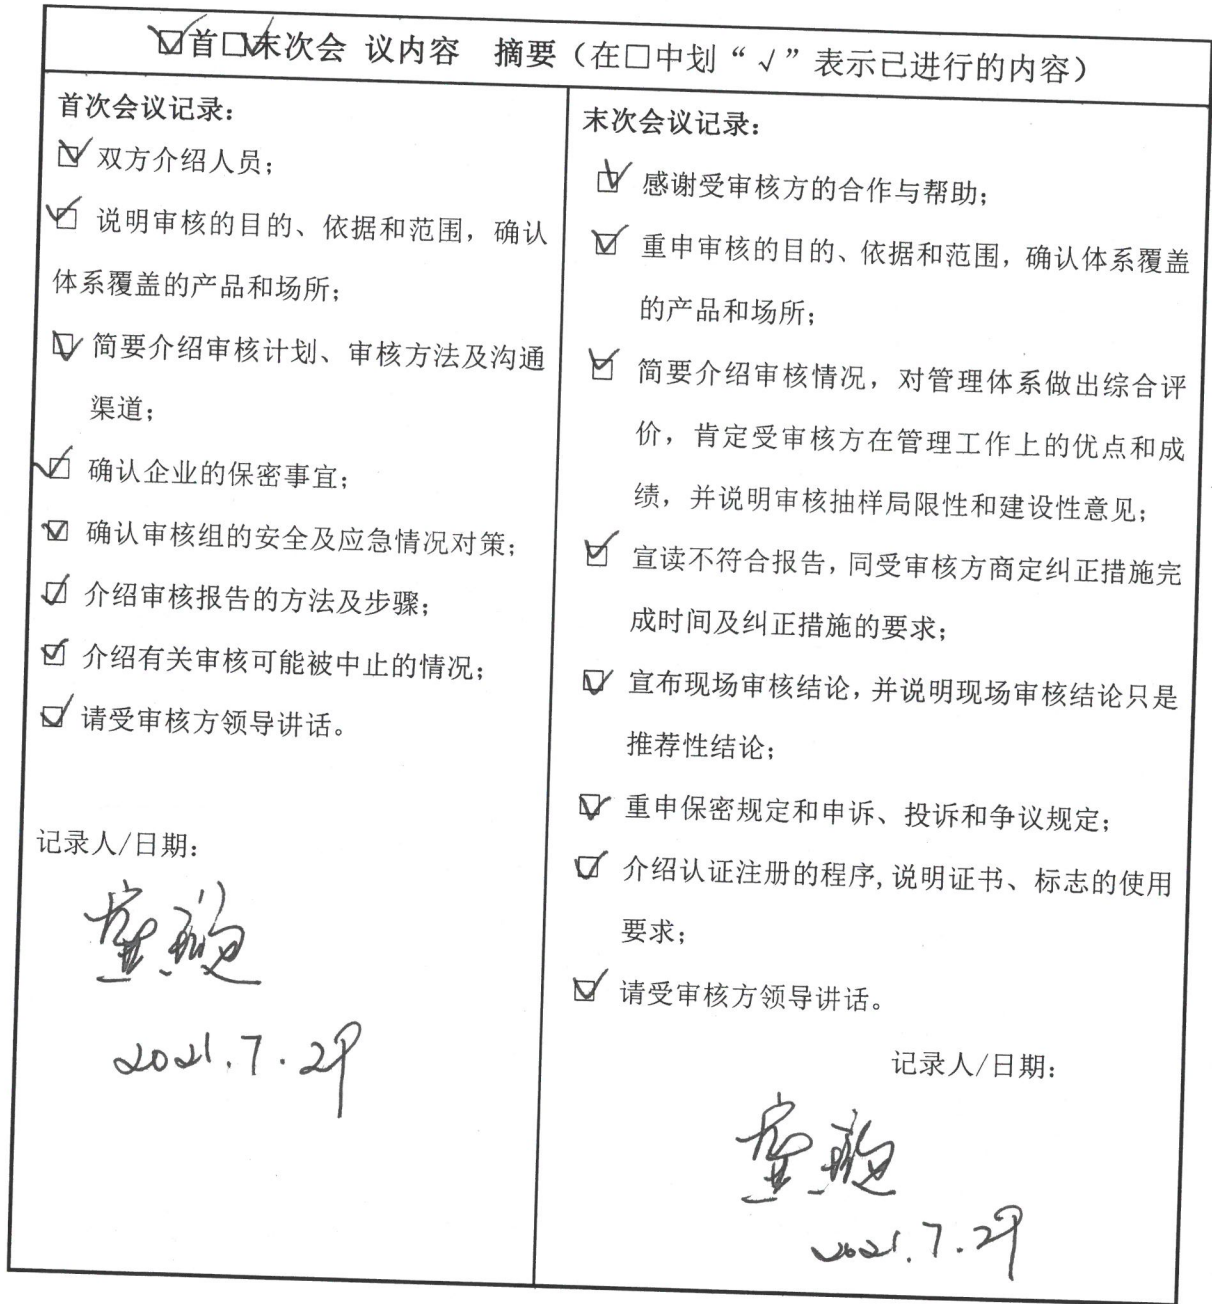 ☑首☑末次会 议内容 摘要（在□中划“√”表示已进行的内容）
首次会议记录：
☑ 双方介绍人员；
☑ 说明审核的目的、依据和范围，确认
体系覆盖的产品和场所；
☑ 简要介绍审核计划、审核方法及沟通
渠道；
☑ 确认企业的保密事宜；
☑ 确认审核组的安全及应急情况对策；
☑ 介绍审核报告的方法及步骤；
☑ 介绍有关审核可能被中止的情况；
☑ 请受审核方领导讲话。
记录人/日期：
2021.7.29
末次会议记录：
☑ 感谢受审核方的合作与帮助；
☑ 重申审核的目的、依据和范围，确认体系覆盖
的产品和场所；
☑ 简要介绍审核情况，对管理体系做出综合评
价，肯定受审核方在管理工作上的优点和成
绩，并说明审核抽样局限性和建设性意见；
☑ 宣读不符合报告，同受审核方商定纠正措施完
成时间及纠正措施的要求；
☑ 宣布现场审核结论，并说明现场审核结论只是
推荐性结论；
☑ 重申保密规定和申诉、投诉和争议规定；
☑ 介绍认证注册的程序,说明证书、标志的使用
要求；
☑ 请受审核方领导讲话。
记录人/日期：
2021.7.29